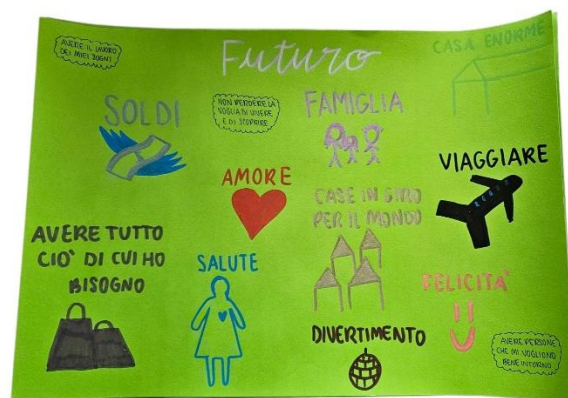 Futuro
AVERE IL LAVORO
DEI MIEI SOGNI
CASA ENORME
SOLDI
NON PERDERE LA
VOGLIA DI VIVERE
E DI SCOPRIRE
FAMIGLIA
VIAGGIARE
AMORE
CASE IN GIRO
PER IL MONDO
AVERE TUTTO
CIO' DI CUI HO
BISOGNO
SALUTE
FELICITA'
DIVERTIMENTO
AVERE PERSONE
CHE MI VOGLIONO
BENE INTORNO